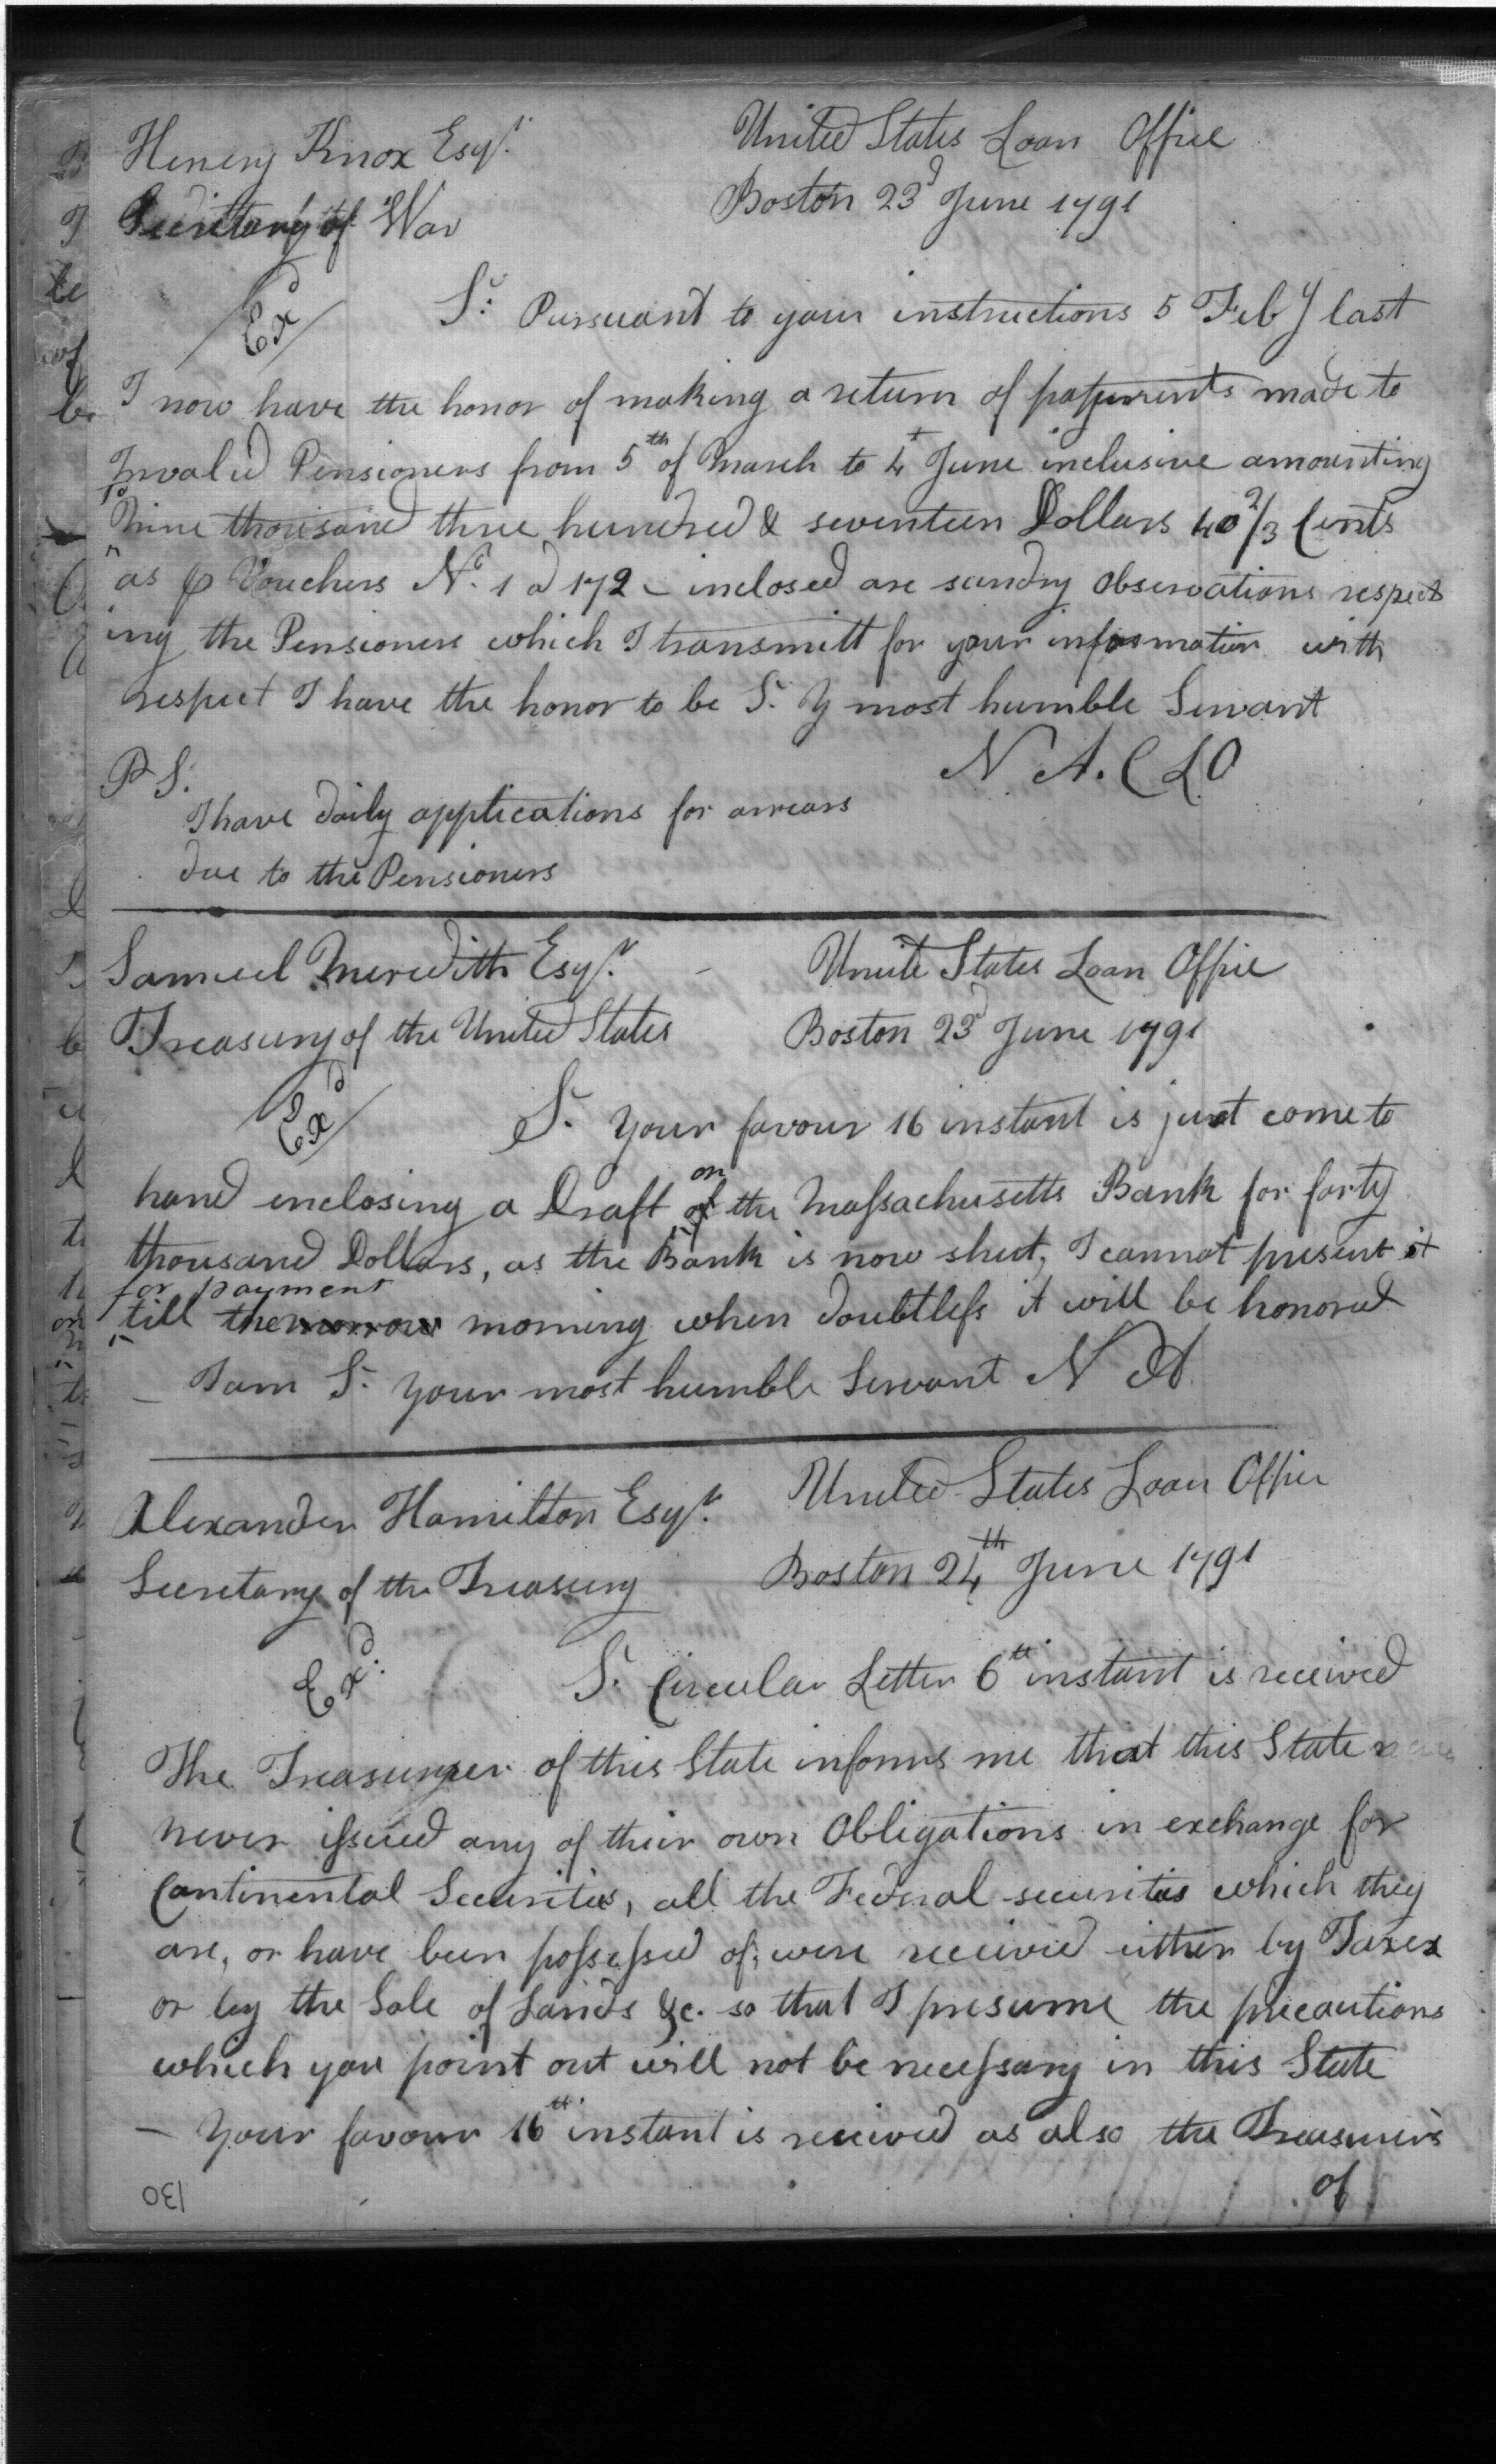 Henery Knox Esqr. United States Loan Office
Secretary of War Boston 23d June 1791
Exd Sr. Pursuant to your instructions 5 Feby last
I now have the honor of making a return of payments made to
Invalid Pensioners from 5th of March to 4th June inclusive amounting
to
Nine thousand three hundred & seventeen Dollars 40 2/3 Cents
as ⅌ Vouchers No. 1 a 172 - inclosed are sundry observations respect
ing the Pensioners which I transmitt for your information with
respect I have the honor to be Sr. Y most humble Servant
N A. C L O
P S.
I have daily applications for arrears
due to the Pensioners
Samuel Meredith Esqr. Unite States Loan Office
Treasury of the United States Boston 23d June 1791
Exd Sr. Your favour 16 instant is just come to
on
hand enclosing a Draft of the Massachusetts Bank for forty
thousand Dollars, as the Bank is now shut, I cannot present it
for payment
till the morning when doubtless it will be honored
- I am Sr. your most humble Servant N A
Alexander Hamilton Esqr. United States Loan Office
Secretary of the Treasury Boston 24th June 1791
Exd. Sr. Circular Letter 6th instant is received
The Treasurer of this State informs me that this State
never issued any of their own Obligations in exchange for
Continental Securities, all the Federal securities which they
are, or have been possessed of, were received either by Taxes
or by the Sale of Lands &c. so that I presume the precautions
which you point out will not be necessary in this State
- Your favour 16th instant is received as also the Treasurer's
of
130